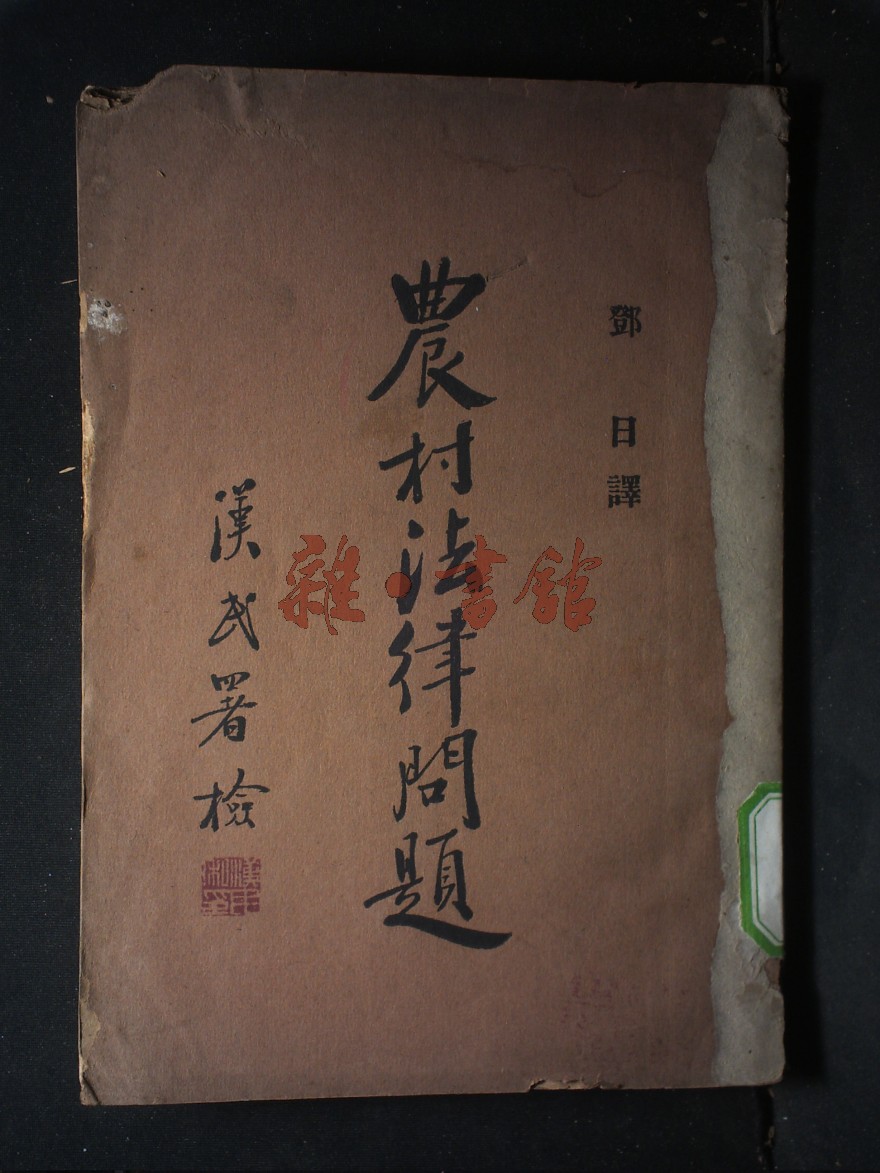 鄧日譯
農村法律問題
漢民署檢
雜·書館